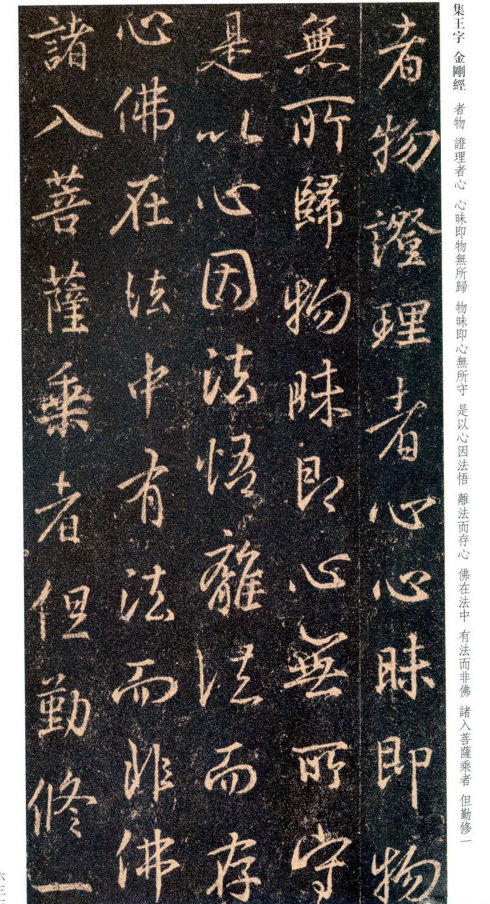 集王字 金剛經 者物 證理者心 心昧即物無所歸 物昧即心無所守 是以心因法悟 離法而存心 佛在法中 有法而非佛 諸入菩薩乘者 但勤修一
者物證理者心心昧即物
無所歸物昧即心無所守
是以心因法悟離法而存
心佛在法中有法而非佛
諸入菩薩乘者但勤修一